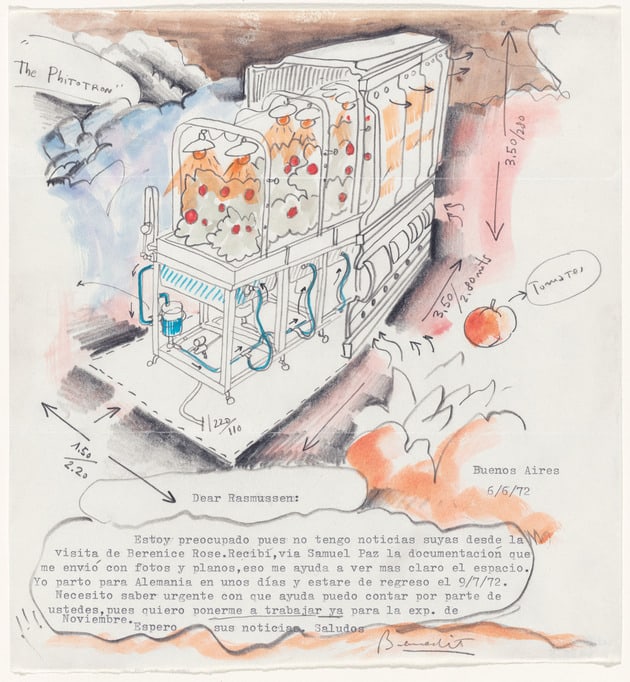 "The Phitotron"
3.50/280
3.50/2.80 mts
Tomatoes
220/110
1.50/2.20
Buenos Aires
6/6/72
Dear Rasmussen:
Estoy preocupado pues no tengo noticias suyas desde la
visita de Berenice Rose.Recibí,via Samuel Paz la documentación que
me envió con fotos y planos,eso me ayuda a ver mas claro el espacio.
Yo parto para Alemania en unos días y estare de regreso el 9/7/72.
Necesito saber urgente con que ayuda puedo contar por parte de
ustedes,pues quiero ponerme a trabajar ya para la exp. de
Noviembre.
Espero sus noticias. Saludos
Benedit
!!!